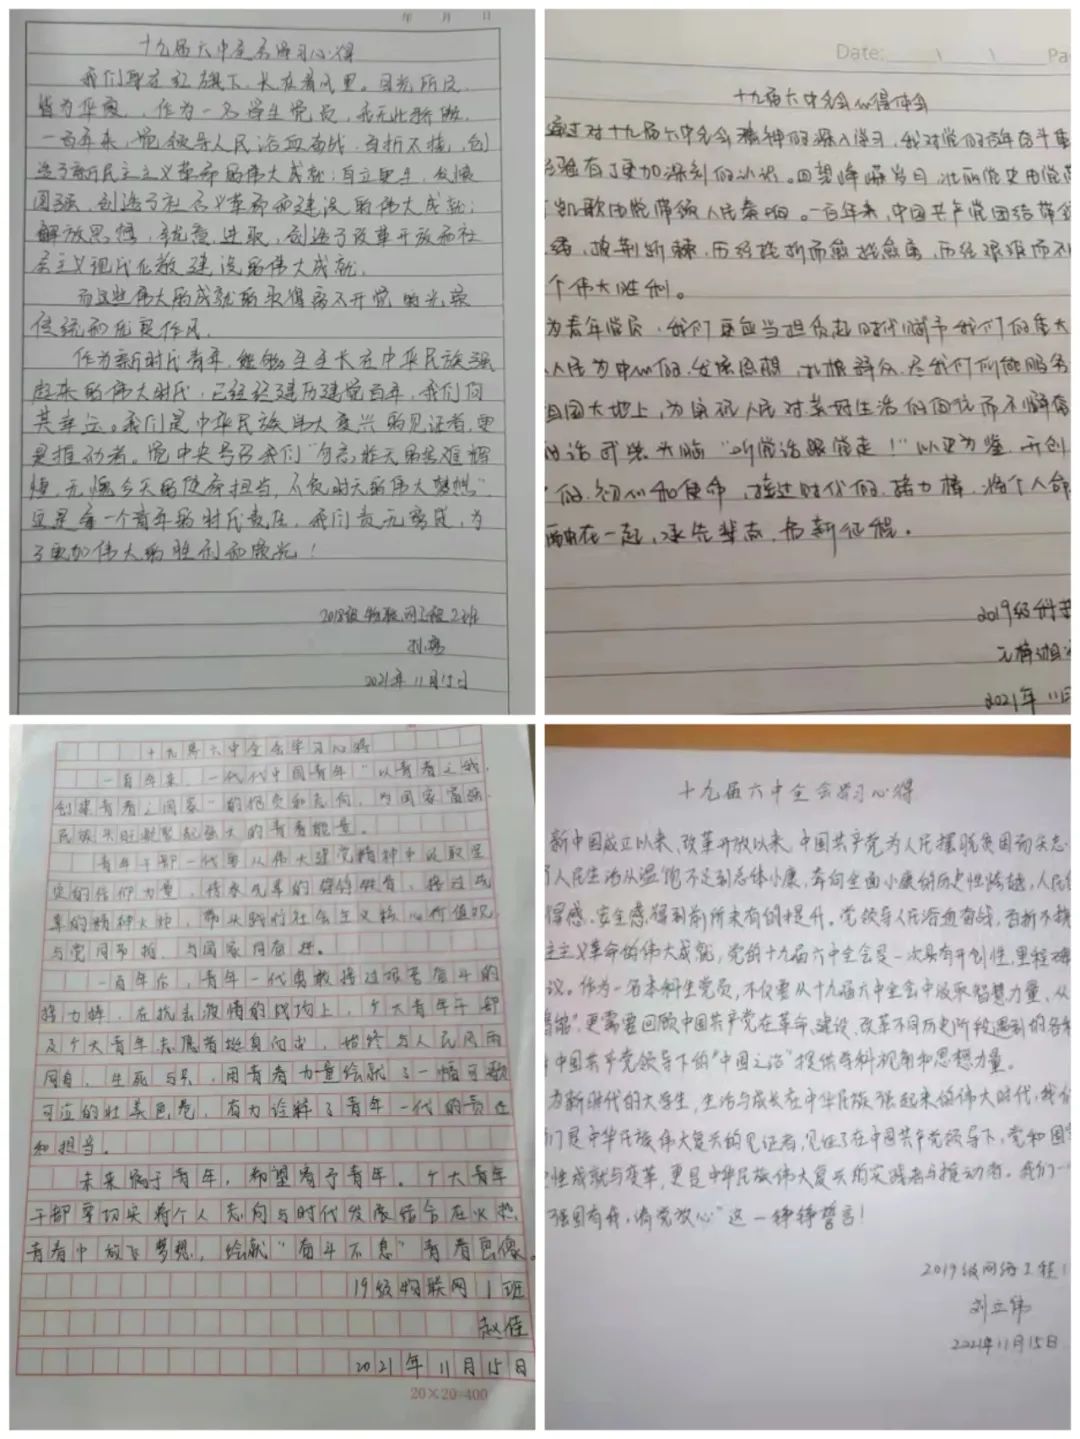 年 月 日
十九届六中全会学习心得
我们生在红旗下,长在春风里。目光所及,
皆为华夏,作为一名学生党员,我无比骄傲,
一百年来,党领导人民浴血奋战、百折不挠,创
造了新民主主义革命的伟大成就;自立更生、发愤
图强,创造了社会主义革命和建设的伟大成就;
解放思想、锐意进取,创造了改革开放和社
会主义现代化建设的伟大成就。
而这些伟大的成就的取得离不开党的光荣
传统和优良作风。
作为新时代青年,能够生长在中华民族强
起来的伟大时代,已经经历建党百年,我们何
其幸运。我们是中华民族伟大复兴的见证者,更
是推动者。党中央号召我们"勿忘昨天的苦难辉
煌,无愧今天的使命担当,不负明天的伟大梦想"
这是每一个青年的时代责任,我们责无旁贷,为
了更加伟大的胜利和荣光!
2018级物联网工程2班
2021年11月15日
Date: \ \ Pa
十九届六中全会心得体会
通过对十九届六中全会精神的深入学习,我对党的百年奋斗重
验有了更加深刻的认识。回望峥嵘岁月,壮丽党史由党
凯歌由党带领人民奏响。一百年来,中国共产党团结带领
结,披荆斩棘,历经挫折而愈挫愈勇,历经艰艰而不
个伟大胜利。
为青年党员,我们更应当担负起时代赋予我们的重大
人民为中心的发展思想,扎根群众,尽我们所能服务
祖国大地上,为实现人民对美好生活的向往而不懈奋
的话武装头脑"听党话跟党走!"以史为鉴,开创
的初心和使命,接过时代的接力棒,将个人命
融在一起,承先辈志,启新征程。
2019级科
2021年11月
十九届六中全会学习心得
一百年来,一代代中国青年"以青春之我,
创建青春之国家"的抱负和志向,为国家富强、
民族兴旺凝聚起强大的青春能量。
青年干部一代要从伟大建党精神中汲取坚
实的信仰力量,传承先辈的铮铮铁骨,接过先
辈的精神火种,带头践行社会主义核心价值观,
与党同步相,与国家同奋进。
一百年后,青年一代勇敢接过艰苦奋斗的
接力棒,在抗击疫情的战场上,个大青年干部
及个大青年志愿者挺身而出,始终与人民风雨
同舟、生死与共,用青春力量绘就了一幅可歌
可泣的壮美画卷,有力诠释了青年一代的责任
和担当。
未来属于青年,希望寄予青年。个大青年
干部要切实将个人志向与时代发展结合在火热
青春中放飞梦想,绘就"奋斗不息"青春画像。
19级物联网1班
赵佳
2021年11月15日
20×20=400
十九届六中全会学习心得
新中国成立以来、改革开放以来,中国共产党为人民摆脱贫困而矢志
了人民生活从温饱不足到总体小康、奔向全面小康的历史性跨越,人民
得感、安全感得到前所未有的提升。党领导人民浴血奋战,百折不挠
主主义革命的伟大成就,党的十九届六中全会是一次具有开创性、里程碑
议。作为一名本科生党员,不仅要从十九届六中全会中汲取智慧力量、从
更需要回顾中国共产党在革命、建设、改革不同历史阶段遇到的各
中国共产党领导下的"中国之治"提供学科视角和思想力量。
为新时代的大学生,生活与成长在中华民族强起来的伟大时代,我
们是中华民族伟大复兴的见证者,见证了在中国共产党领导下,党和国
性成就与变革,更是中华民族伟大复兴的实践者与推动者。我们一
强国有我,请党放心"这一铮铮誓言!
2019级网络工程1
刘立伟
2021年11月15日